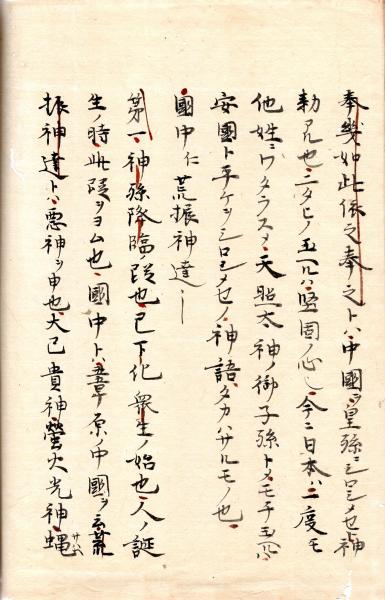 奉幾如此依之奉之トハ中國ヲ皇孫ニシロシメセト神
勅ノ儿也ニタヒノ玉ヘルハ堅固ノ心也今ニ日本ハ二度モ
他姓ニワタラス天照太神ノ御子孫トメモチ玉ヘリ
安國ト平ケクシロシメセノ神語タカハサルモノ也
國中仁荒振神達
第一神孫降臨ノ段也已下化衆生ノ始也人ノ誕
生ノ時此段ヲヨム也國中トハ葦原ノ中國ヲ云荒
振神達トハ悪神ヲ申也大己貴神螢火光神蝿